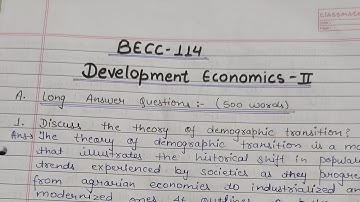 CLASSMATE
BECC-114
Development Economics-II
A. Long Answer Questions:- (500 words)
1. Discuss the theory of demographic transition?
Ans:- The theory of demographic transition is a mo
that illustrates the historical shift in populat
trends experienced by societies as they progre
from agrarian economies to industrialized an
modernized ones. It outlines